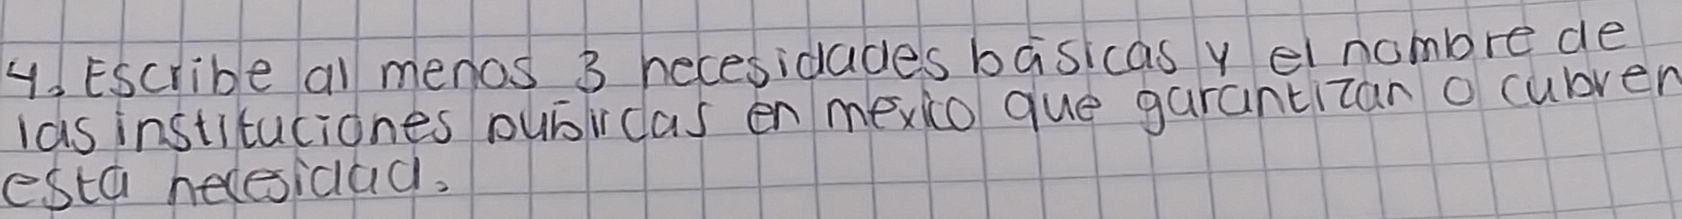 4. Escribe al menos 3 necesidades básicas y el nombre de
las instituciones públicas en mexico que garantizan o cubren
esta necesidad.